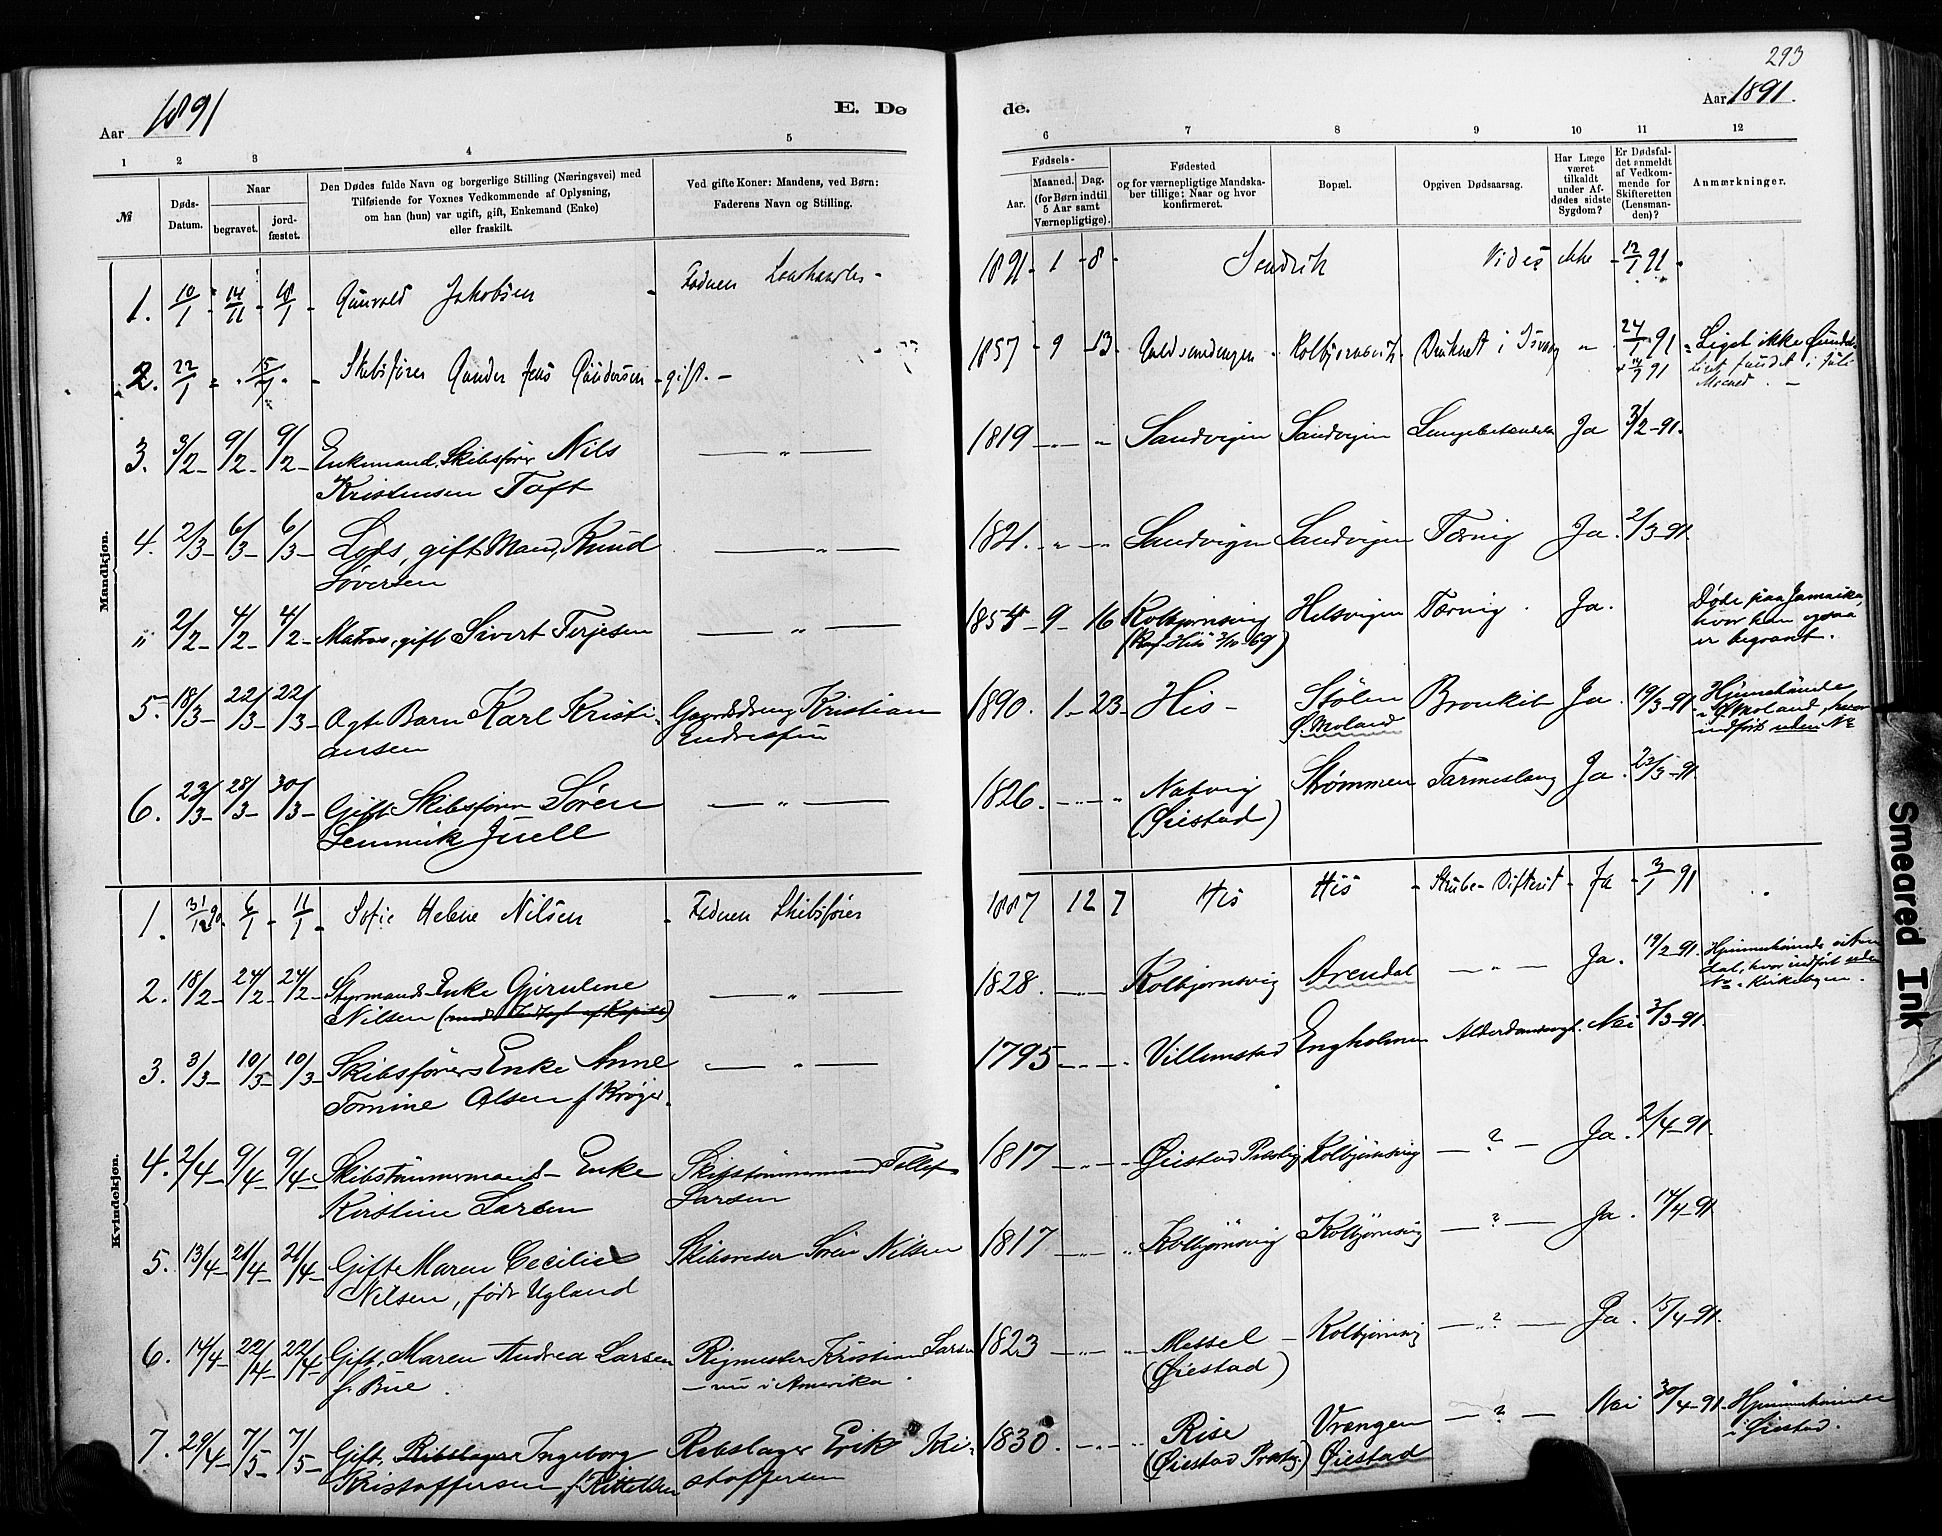 293
Aar 1891
E. Dø
de.
Aar 1891.
1
2
3
4
5
6
7
8
9
10
11
12
№
Døds-
Datum.
Naar
begravet.
jord-
fæstet.
Den Dødes fulde Navn og borgerlige Stilling (Næringsvei) med
Tilføiende for Voxnes Vedkommende af Oplysning,
om han (hun) var ugift, gift, Enkemand (Enke)
eller fraskilt.
Ved gifte Koner: Mandens, ved Børn:
Faderens Navn og Stilling.
Fødsels-
Aar.
Maaned.
Dag.
(for Børn indtil
5 Aar samt
Værnepligtige).
Fødested
og for værnepligtige Mandska-
ber tillige; Naar og hvor
konfirmeret.
Bopæl.
Opgiven Dødsaarsag.
Har Læge
været
tilkaldt
under Af-
dødes sidste
Sygdom?
Er Dødsfal-
det anmeldt
af Vedkom-
mende for
Skifteretten
(Lensman-
den)?
Anmærkninger.
Mandkjøn.
1. 10/1 14/11 18/1 Gunvald Jakobsen Faderen 1891 - 1 - 8 - Vides ikke 12/1 91
2. 22/1 " 15/7 Skibsfører Gunder Jens Gundersen - gift. - 1857 - 9 - 13 Kolbjørnsvik Druknet i 24/1 91 Liget ikke
14/7 91 fundet i Juli
Maaned. -
3. 3/2 9/2 9/2 Enkemand, Skibsfører Nils - " - 1819 - " - " Sandvigen Sandvigen Lungebetændelse Ja 3/2-91.
Kristensen Toft
4. 2/3 6/3 6/3 Lods, gift Mand, Knud - " - 1821. " - " Sandvigen Sandvigen Tæring Ja. 2/3-91.
Siversen
" 2/2 4/2 4/2 Matros, gift Sivert Terjesen - " - 1854 - 9 - 16 Kolbjørnsvig Helsvigen Tæring. Ja. Døde paa Jamaika,
(Konf. Hisø 3/10-69) hvor han ogsaa
er begravet.
5. 18/3 22/3 22/3 Ægt. Barn Karl Kristi- Gaardsdreng Kristian 1890. 1 - 23 - His - Stølen Bronkit Ja. 19/3-91 Hjemmehørende
ansen Endresen Ø. Moland i Ø. Moland, hvor
indført uden №
6. 23/3 28/3 30/3 Gift Skibsfører Søren - " - 1826. - " - " Natvig Strømmen Tarmeslyng Ja. 23/3-91
Lemmik Juell (Øiestad)
Kvindekjøn.
1. 31/12 90 6/1 11/1 Sofie Helene Nilsen - Faderen Skibsfører 1887 12 7 His His - Strube-Difterit - Ja - 3/1 91
2. 18/2 24/2 24/2 Styrmands-Enke Gjeruline - " - 1828. - " - Kolbjørnsvig Arendal - " - Ja. 19/2-91. Hjemmehørende i Aren-
Nilsen dal, hvor indført uden
№ i Kirkebogen.
3. 3/3 10/3 10/3 Skibsførers Enke Anne - " - 1795 - " - " Villumstad Engholmen Alderdomssvagh. Nei 3/3-91.
Tomine Olsen f. Krøger.
4. 2/4 9/4 9/4 Skibstømmermands-Enke Skibstømmermand Tellef 1817 - " - " Øiestad Præstbg Kolbjørnsvig - ? - Ja. 2/4-91.
Kirstine Larsen Larsen
5. 13/4 21/4 21/4 Gift Maren Cecilie Skibsreder Søren Nilsen 1817 - " - " Kolbjørnsvig Kolbjørnsvig - ? - Ja. 14/4-91
Nilsen, født Ugland
6. 14/4 22/4 22/4 Gift, Maren Andrea Larsen Rigmester Kristian Larsen 1823 - " - " Messel - Kolbjørnsvig - ? - Ja. 15/4-91.
f. Bue. - nu i Amerika. (Øiestad)
7. 29/4 7/5 7/5 Gift, Rebslager Ingeborg Rebslager Erik Kri- 1830. - " - " Rise Vrengen - ? - Nei 30/4-91 Hjemmehørende
Kristoffersen, f. Kittelsen stoffersen (Øiestad Præstg.) Øiestad i Øiestad.
Smeared Ink